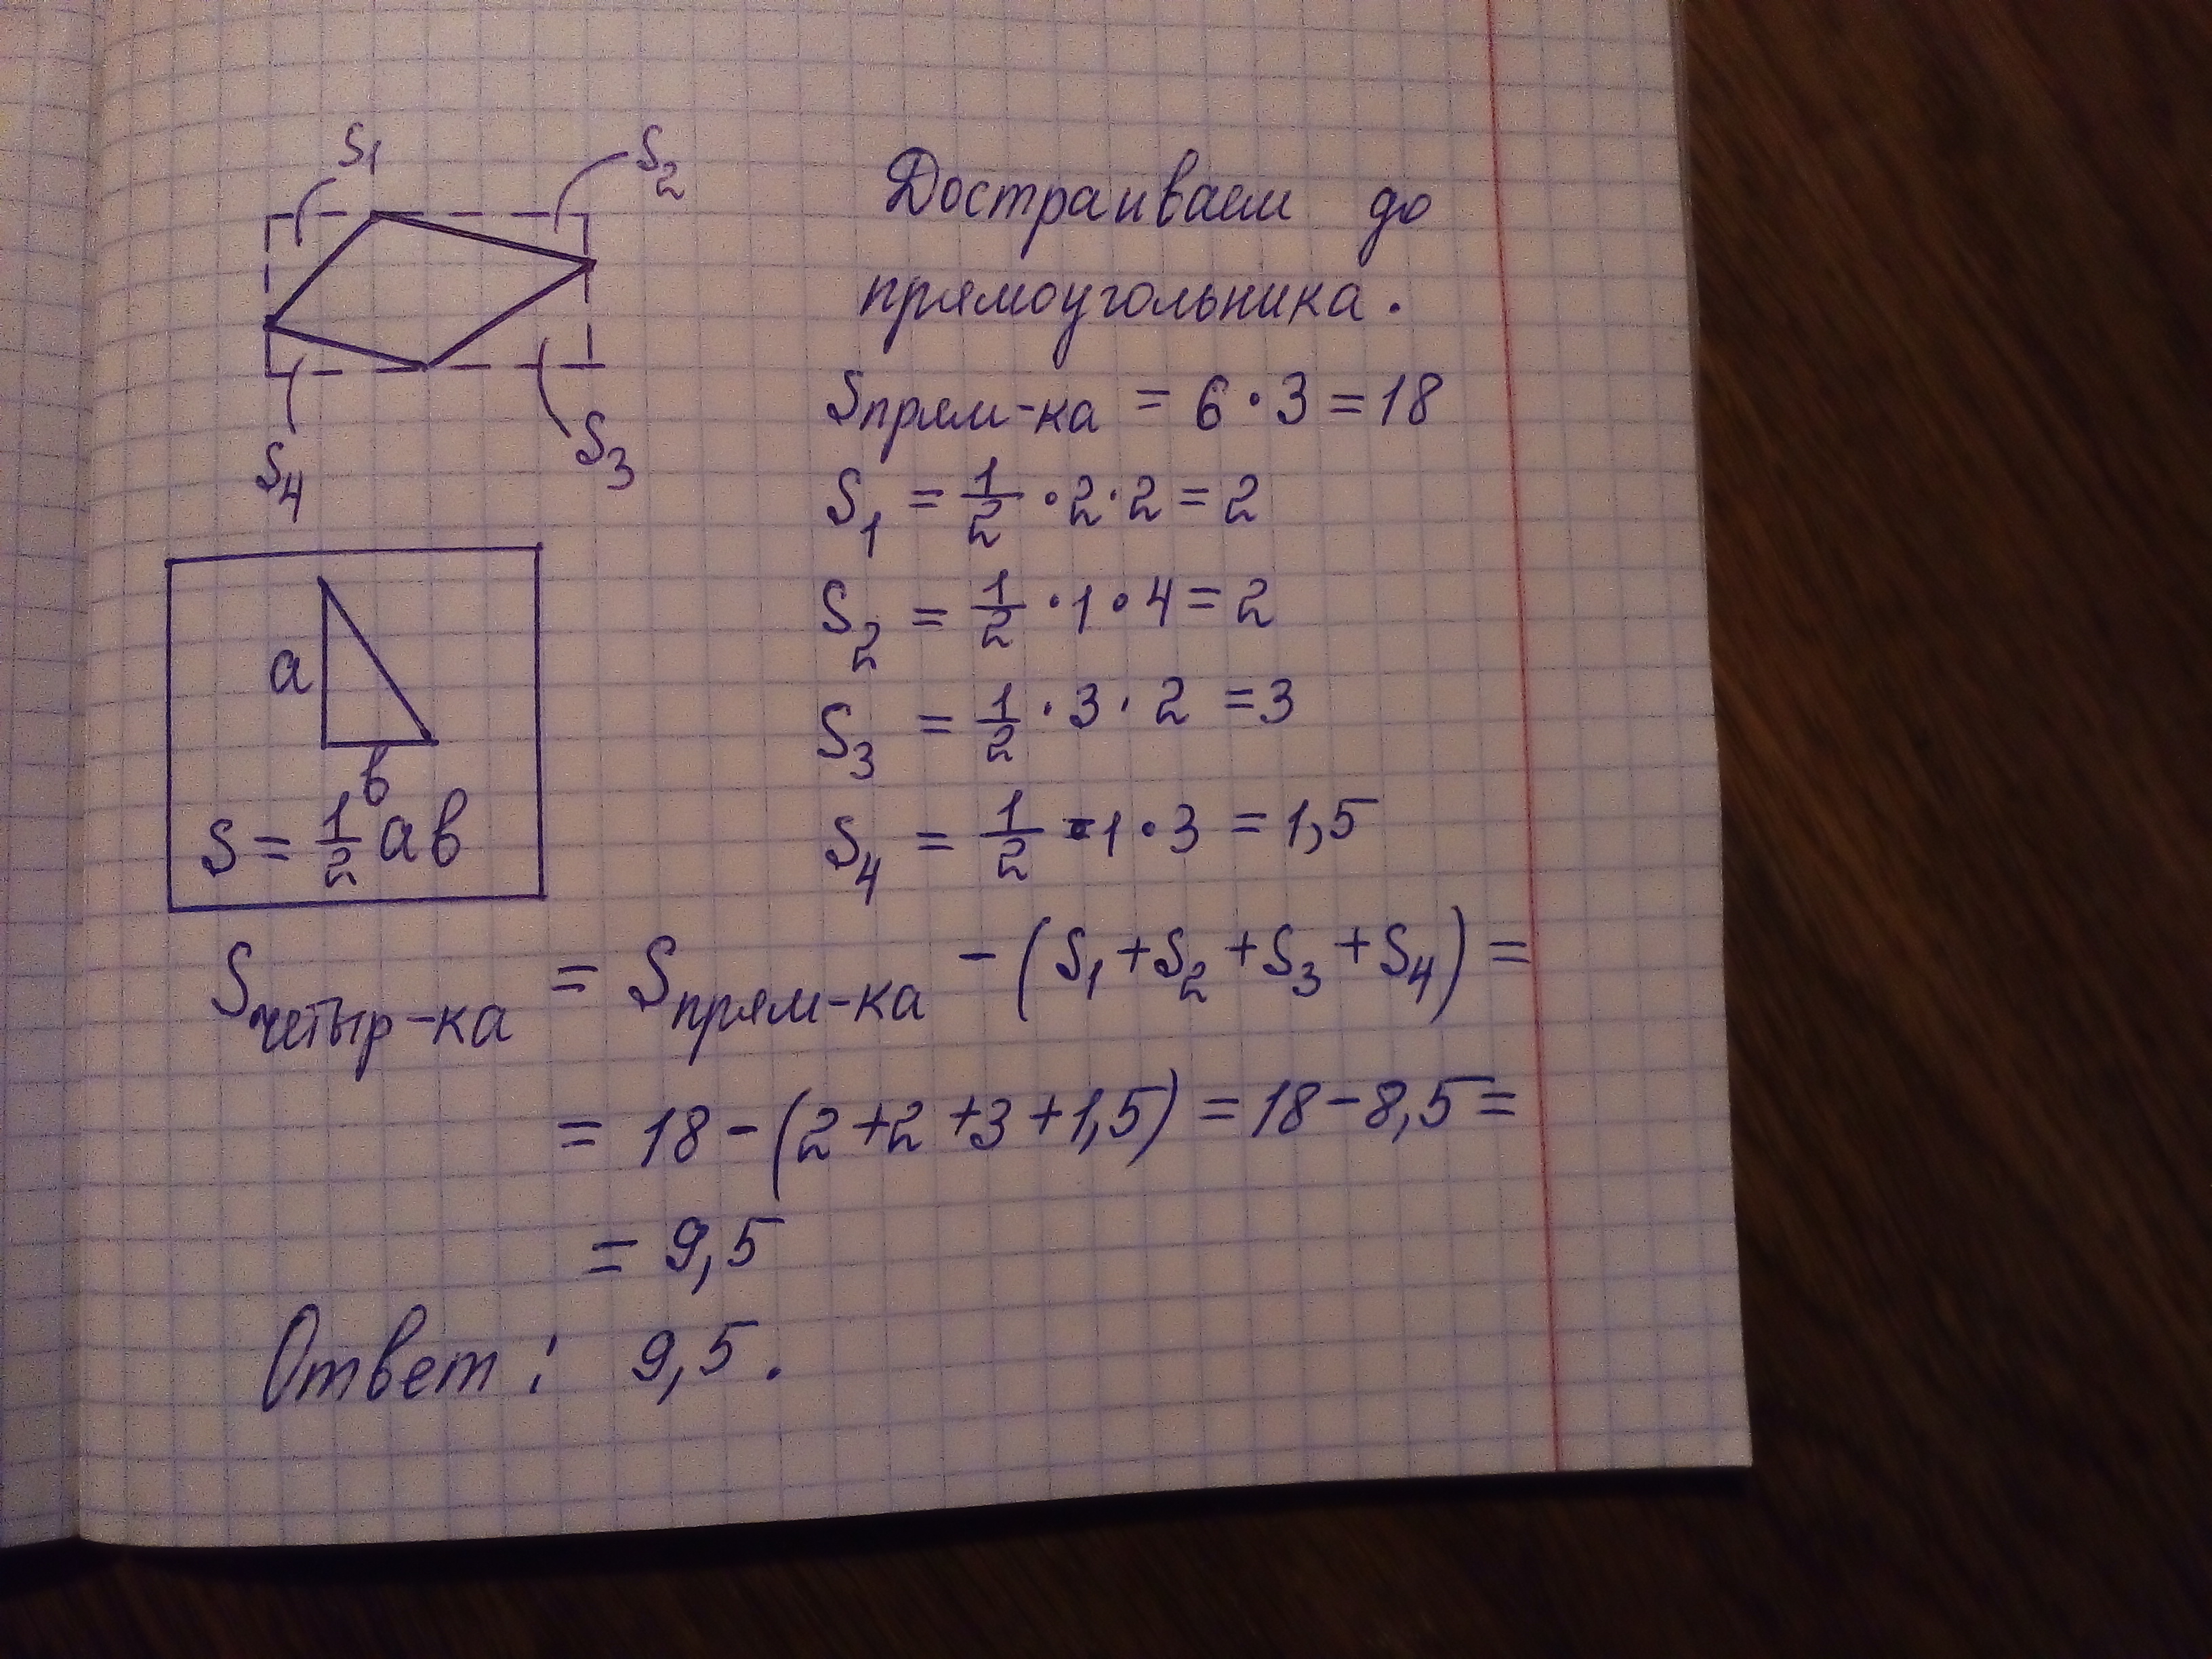 S₁
S₂
S₄
S₃
a
в
S = 1/2 aв
Достраиваем до
прямоугольника.
Sпрям-ка = 6 · 3 = 18
S₁ = 1/2 · 2 · 2 = 2
S₂ = 1/2 · 1 · 4 = 2
S₃ = 1/2 · 3 · 2 = 3
S₄ = 1/2 · 1 · 3 = 1,5
Sчетыр-ка = Sпрям-ка - (S₁ + S₂ + S₃ + S₄) =
= 18 - (2 + 2 + 3 + 1,5) = 18 - 8,5 =
= 9,5
Ответ: 9,5.